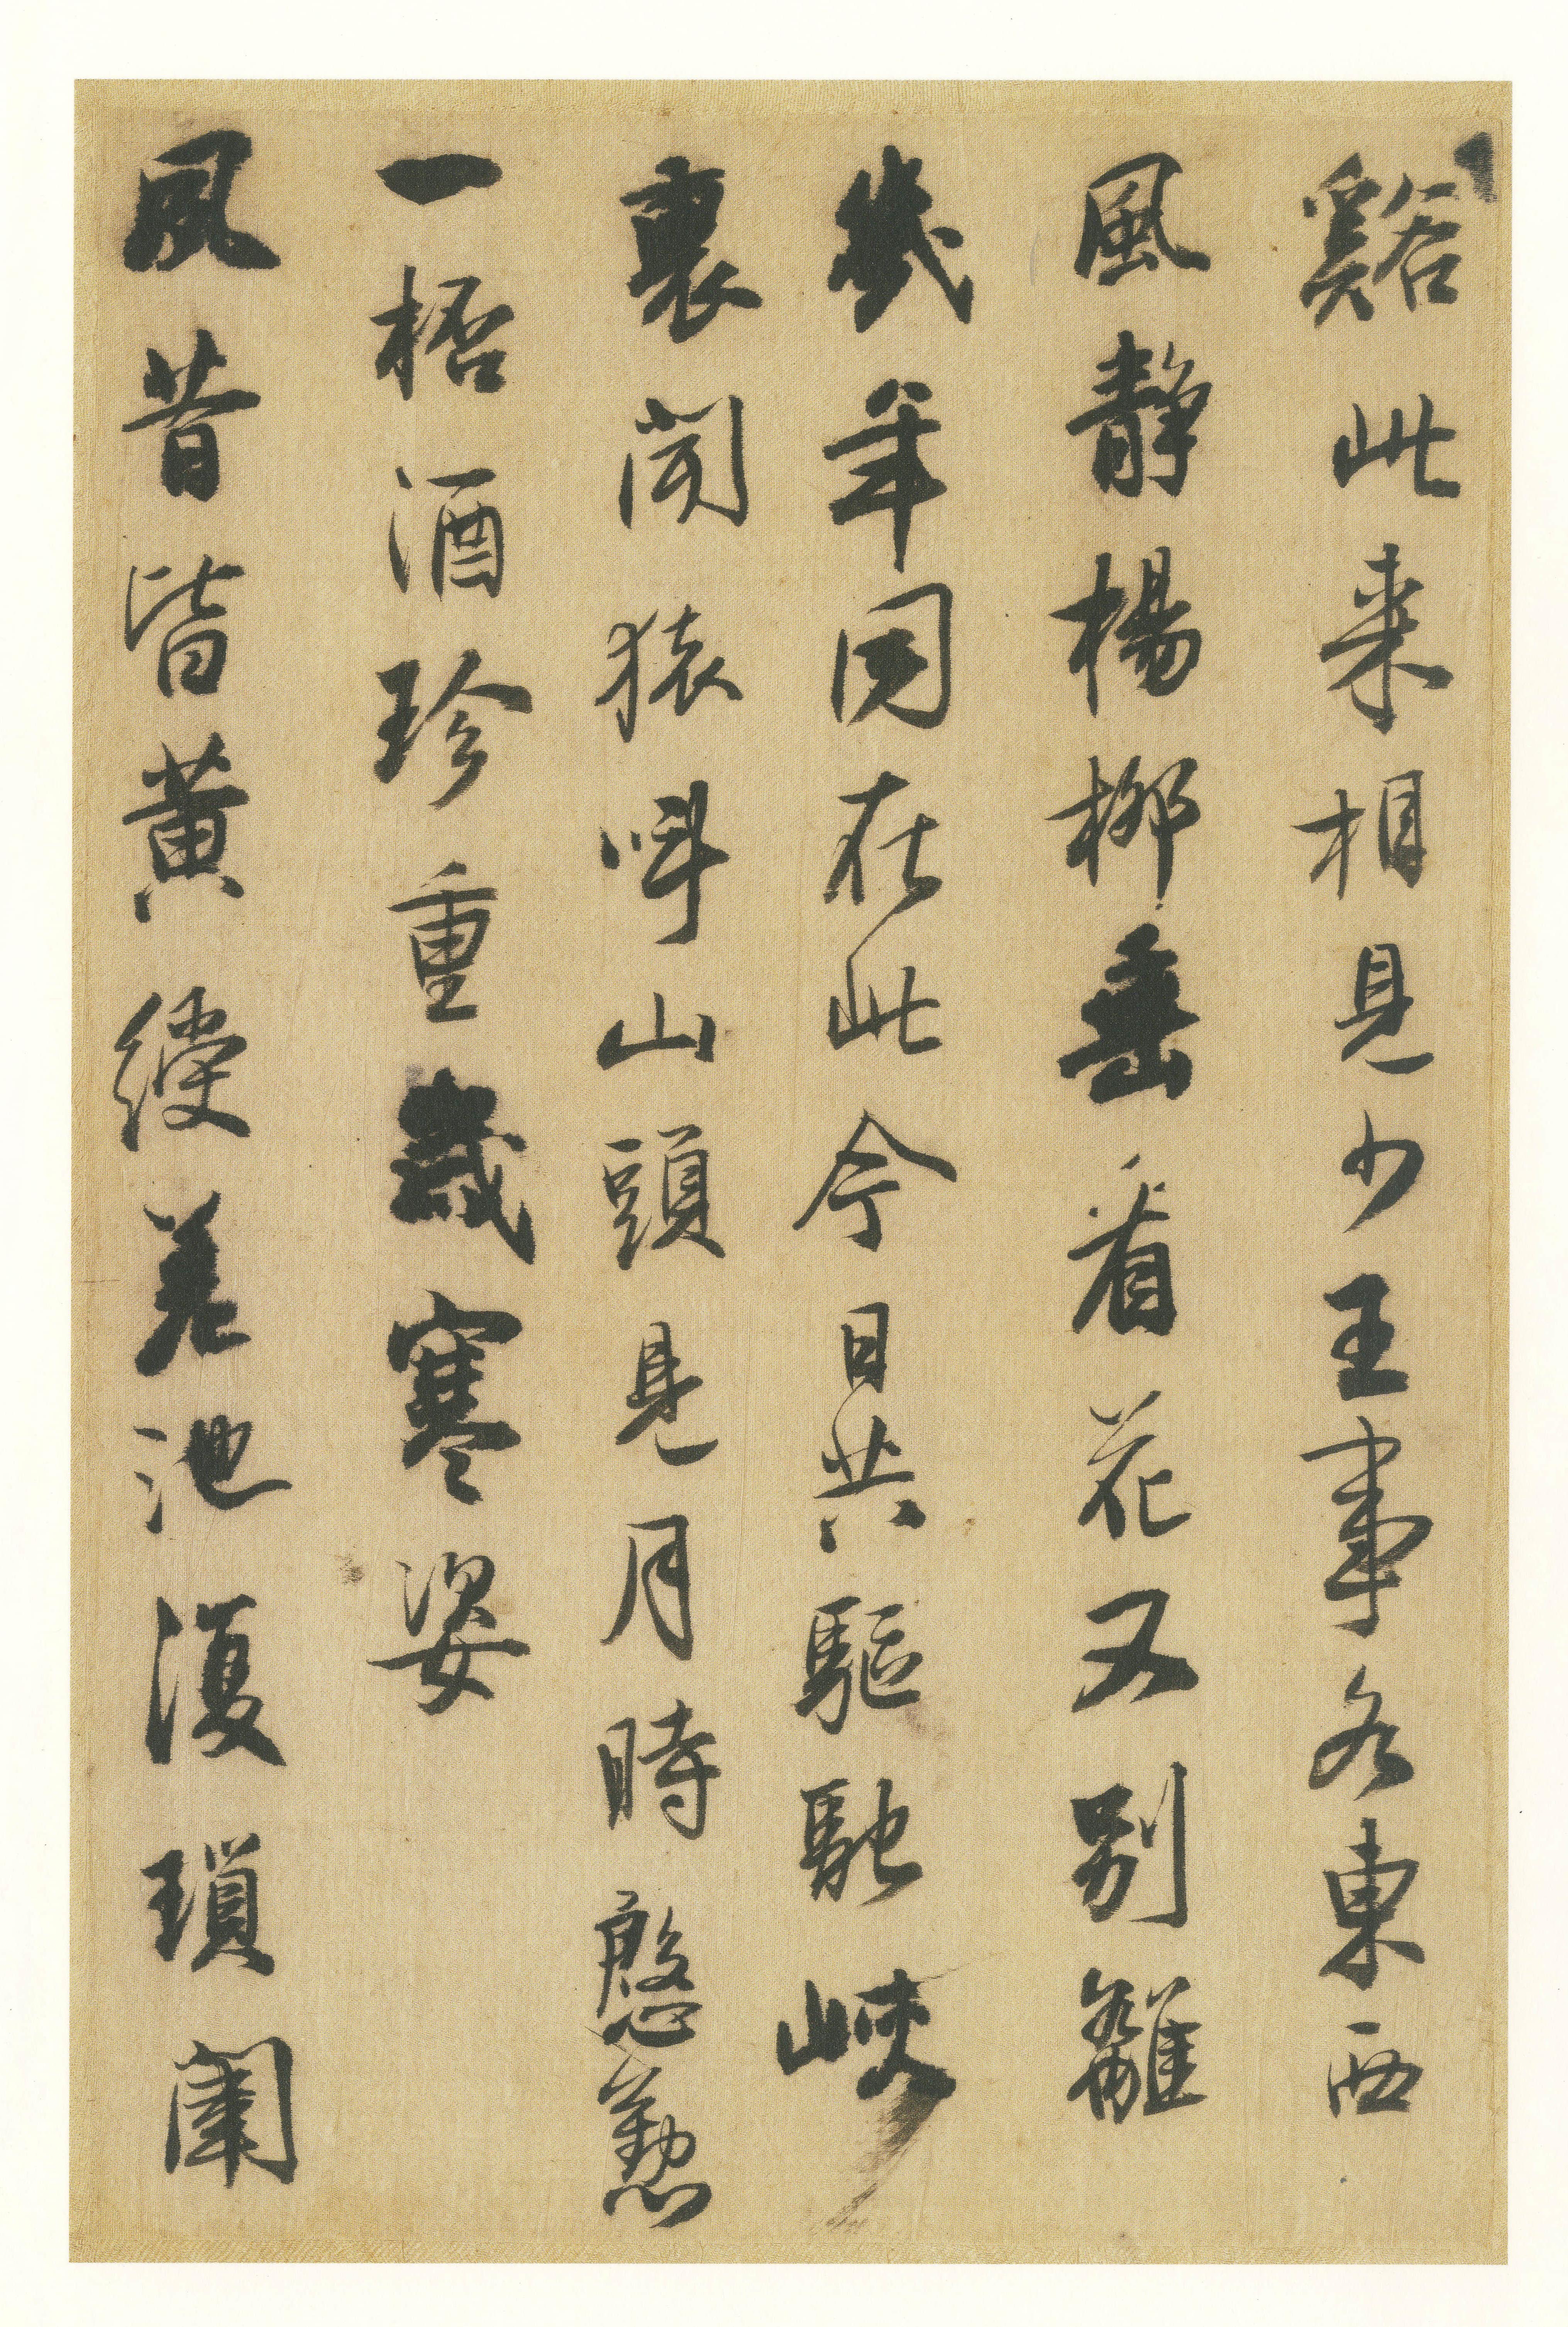 谿此来相見少王事各東西
風靜楊柳垂看花又別離
幾年同在此今日共驅馳峽
裏聞猿叫山頭見月時慇懃
一桮酒珍重歲寒姿
夙昔皆黃綬差池復瑣闈